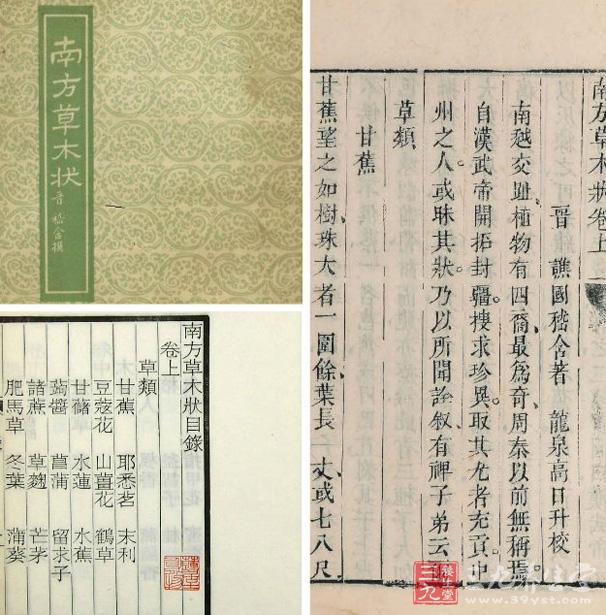 南方草木狀
晉 嵇含撰
南方草木狀目錄
卷上
草類
甘蕉 耶悉茗 末利
豆蔻花 山薑花 鶴草
甘藷 水蓮 水蕉
蒟醬 菖蒲 留求子
諸蔗 草麴 芒茅
肥馬草 冬葉 蒲葵
南方草木狀卷上
晉 譙國嵇含著 龍泉高日升校
南越交趾植物有四裔最爲奇周秦以前無稱焉
自漢武帝開拓封疆搜求珍異取其尤者充貢中
州之人或昧其狀乃以所聞詮叙有裨子弟云爾
草類
甘蕉
甘蕉望之如樹珠大者一圍餘葉長一丈或七八尺
三九養生堂
www.39yst.com